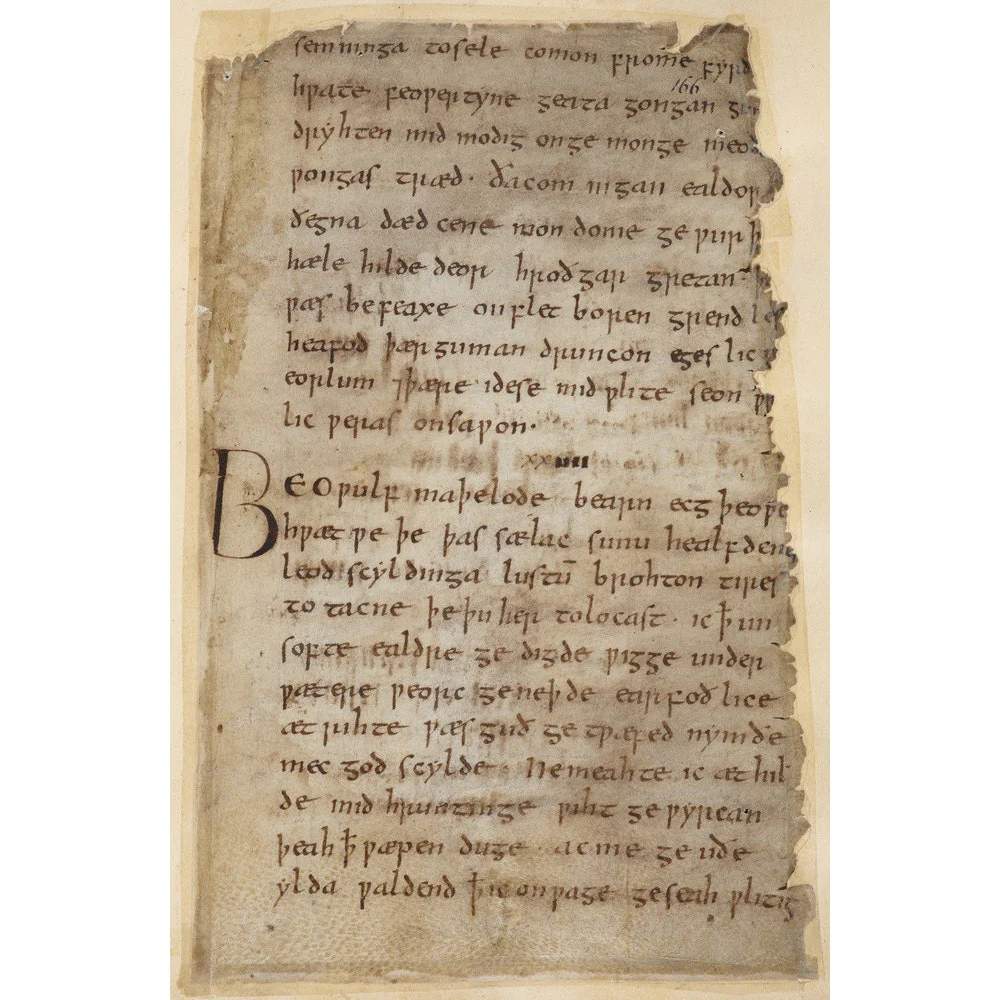 semninga tosele comon frome fyrd
166
hƿate feoƿertyne geata gongan
dryhten mid modig onge monge meod
ƿongas træd· ða com in gan ealdor
ðegna dæd cene mon dome ge ƿurþ
hæle hilde deor hroðgar gretan·
ƿæs be feaxe on flet boren grend les
heafod þær guman druncon eges lic
eorlum ⁊ þære idese mid ƿlite seon
lic ƿeras onsaƿon·
xxiiii
BEOƿulf maþelode bearn ecg þeoƿe
hƿæt ƿe þe þas sælac sunu healfden
leod scyldinga lustū brohton tires
to tacne þe þu her to locast· ic ꝥ un
softe ealdre ge digde ƿigge under
ƿætere ƿeorc ge neþde earfoð lice
æt rihte ƿæs guð ge tƿæfed nymðe
mec god scylde· Ne meahte ic æt hil
de mid hruntinge ƿiht ge ƿyrcan
þeah ꝥ ƿæpen duge· ac me ge uðe
ylda ƿaldend ꝥ ic on ƿage geseah ƿlitig